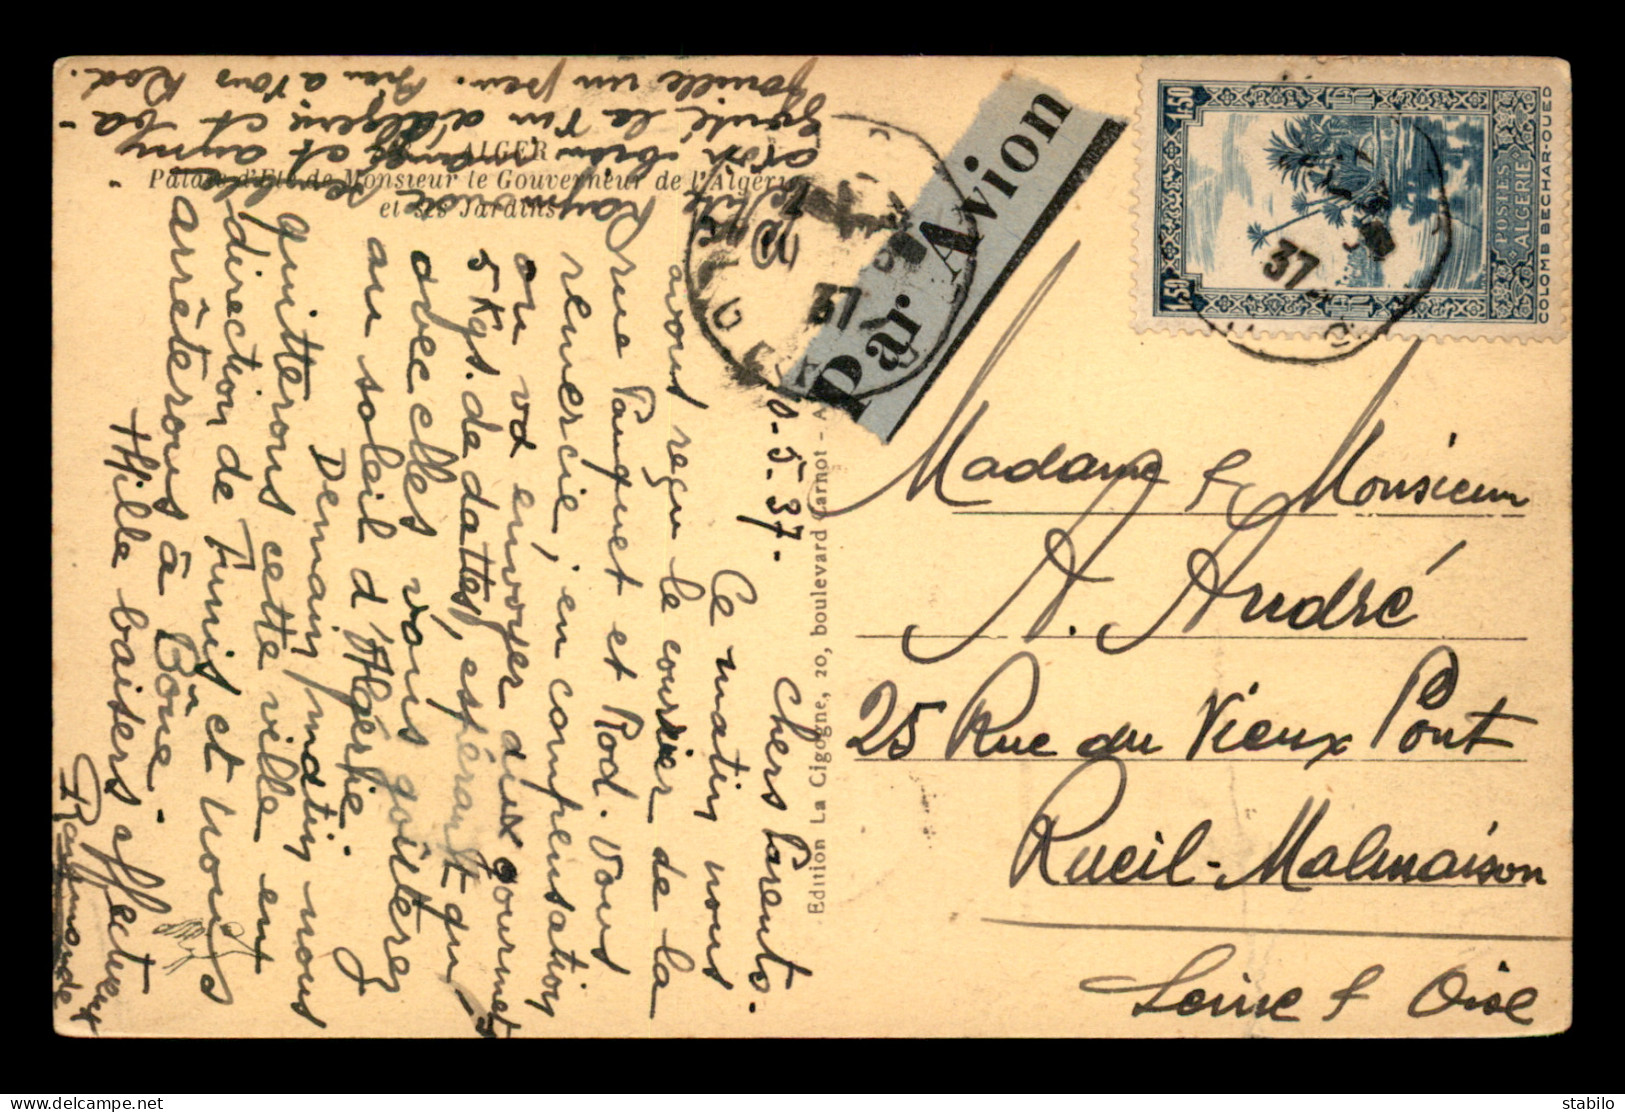 ALGER
Palais d'Été de Monsieur le Gouverneur de l'Algérie
et ses Jardins
Edition La Cigogne, 20, boulevard Carnot - A
Par Avion
1.50
1.50
POSTES
ALGERIE
COLOMB BECHAR-OUED
37
37
-5-37-
Chers Parents.
Ce matin nous
avons reçu le courrier de la
rue Pauquet et Rod. Vous
remercie, en compensation
on va envoyer aux gourmets
5 Kgs. de dattes, espérant qu'
avec elles vous goûterez
au soleil d'Algérie
Demain matin nous
quitterons cette ville en
direction de Tunis, et nous
arrêterons à Bône -
Mille baisers affectueux
Raymonde
Raymonde
bien et
la d'Algérie et
un peu. à tous Rod.
Madame & Monsieur
A. André
25 Rue du Vieux Pont
Rueil-Malmaison
Seine & Oise
stabilo